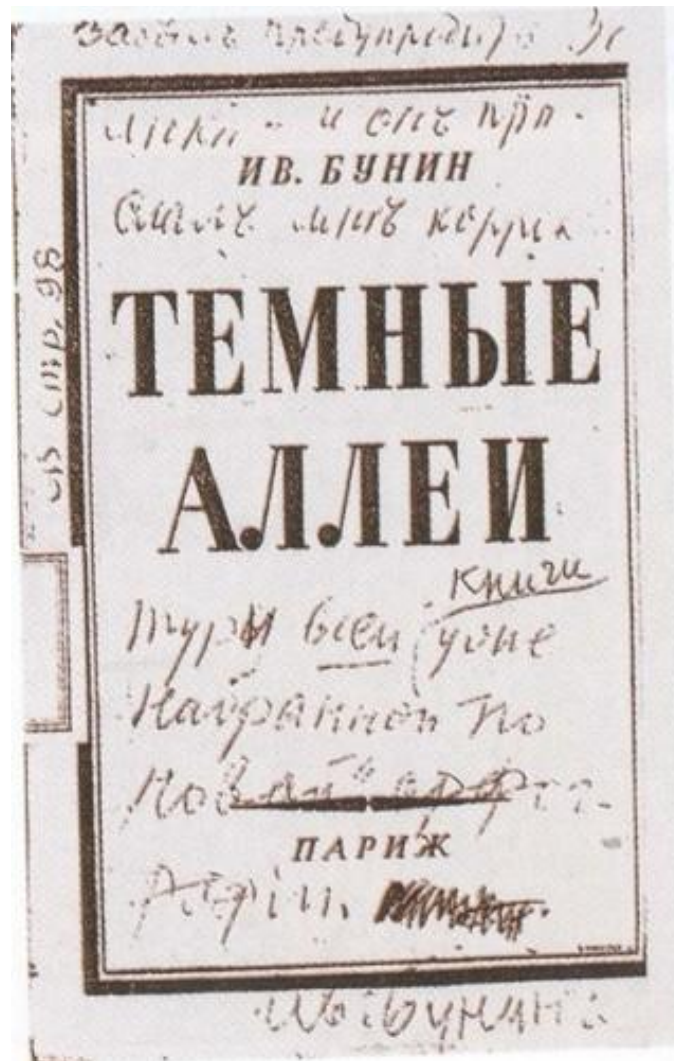 забылъ предупредить
и онъ при-
ИВ. БУНИН
слалъ мнѣ корректу-
ТЕМНЫЕ
АЛЛЕИ
книги
туры всей уже
набранной по
новой орфог-
ПАРИЖ
рафiи.
Ив. Бунинъ.
стр. 98